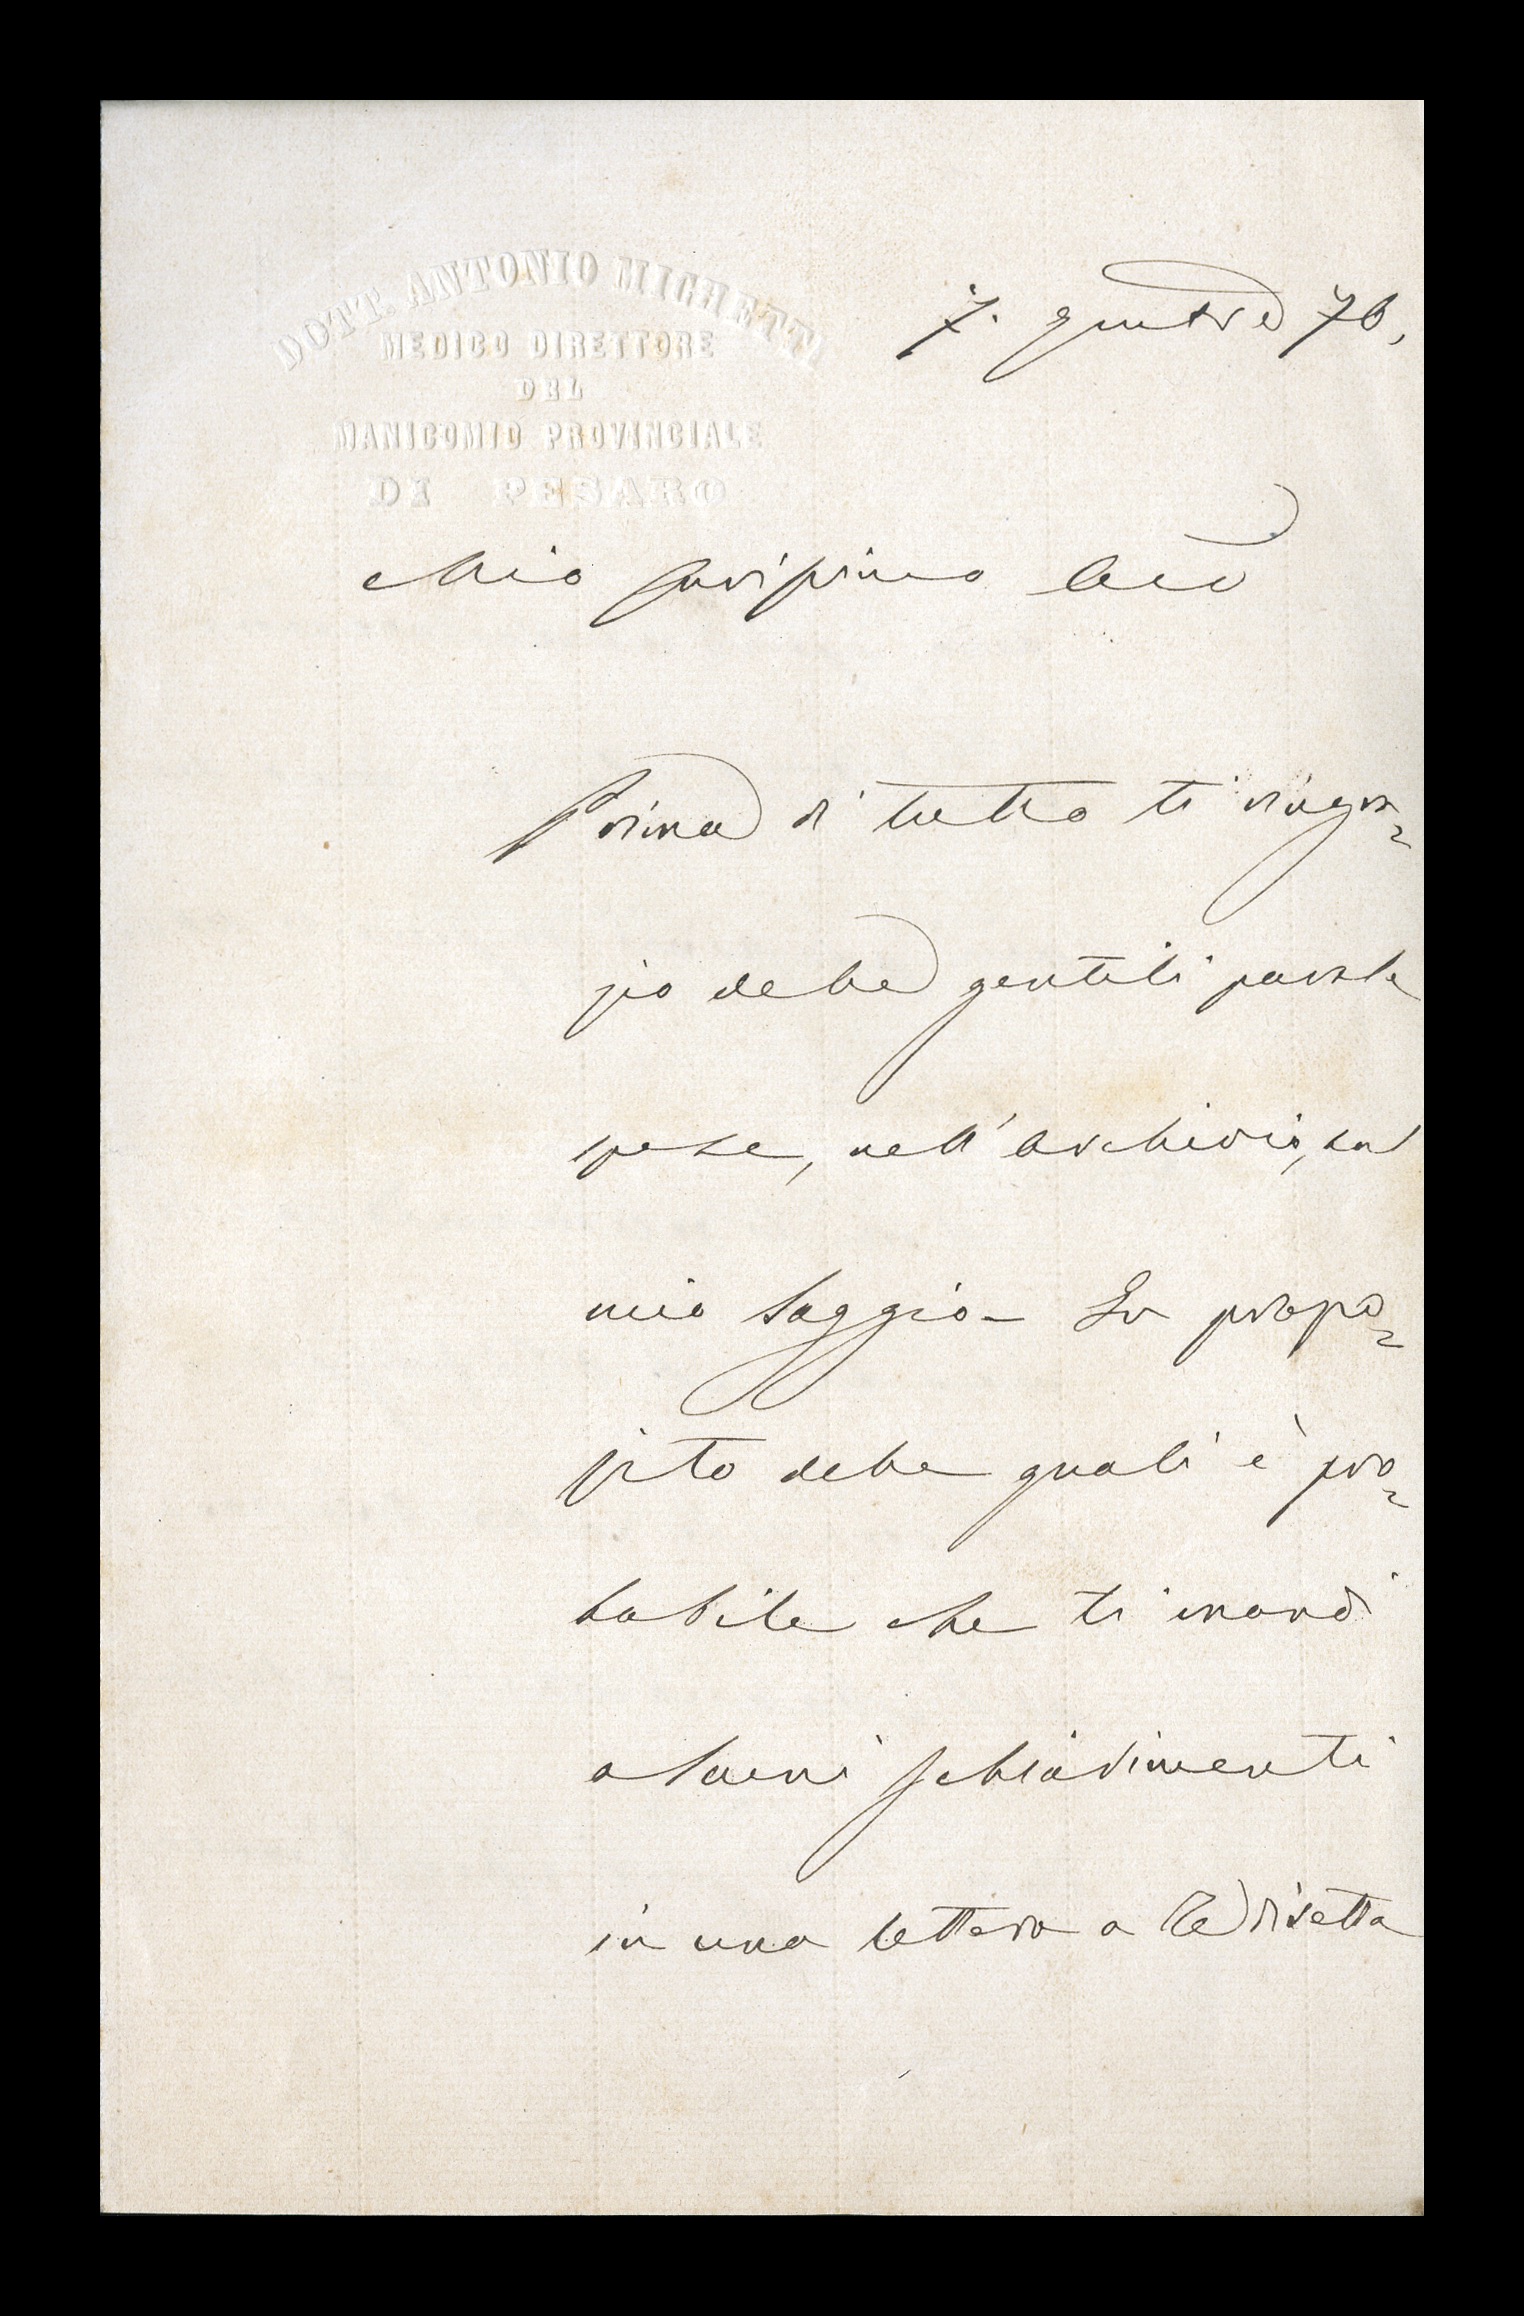 DOTT. ANTONIO MICHETTI
MEDICO DIRETTORE
DEL
MANICOMIO PROVINCIALE
DI PESARO
7. 76.
Mio carissimo
Prima di tutto ti ringra=
zio delle gentili parole
spese, nell'Archivio, sul
mio Saggio - In propo=
sito delle quali è pro=
babile che ti mandi
alcuni schiarimenti
in una lettera a